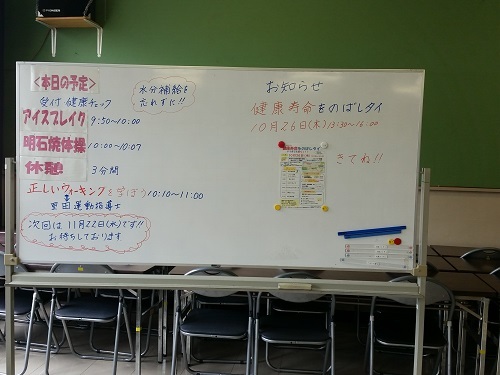 <本日の予定>
受付 健康チェック
水分補給を
忘れずに!!
アイスブレイク 9:50~10:00
明石焼体操 10:00~10:07
休憩 3分間
正しいウォーキングを学ぼう 10:10~11:00
運動指導士
次回は11月22日(水)です!!
お待ちしております
お知らせ
健康寿命をのばしタイ
10月26日(木)13:30~16:00
きてね!!